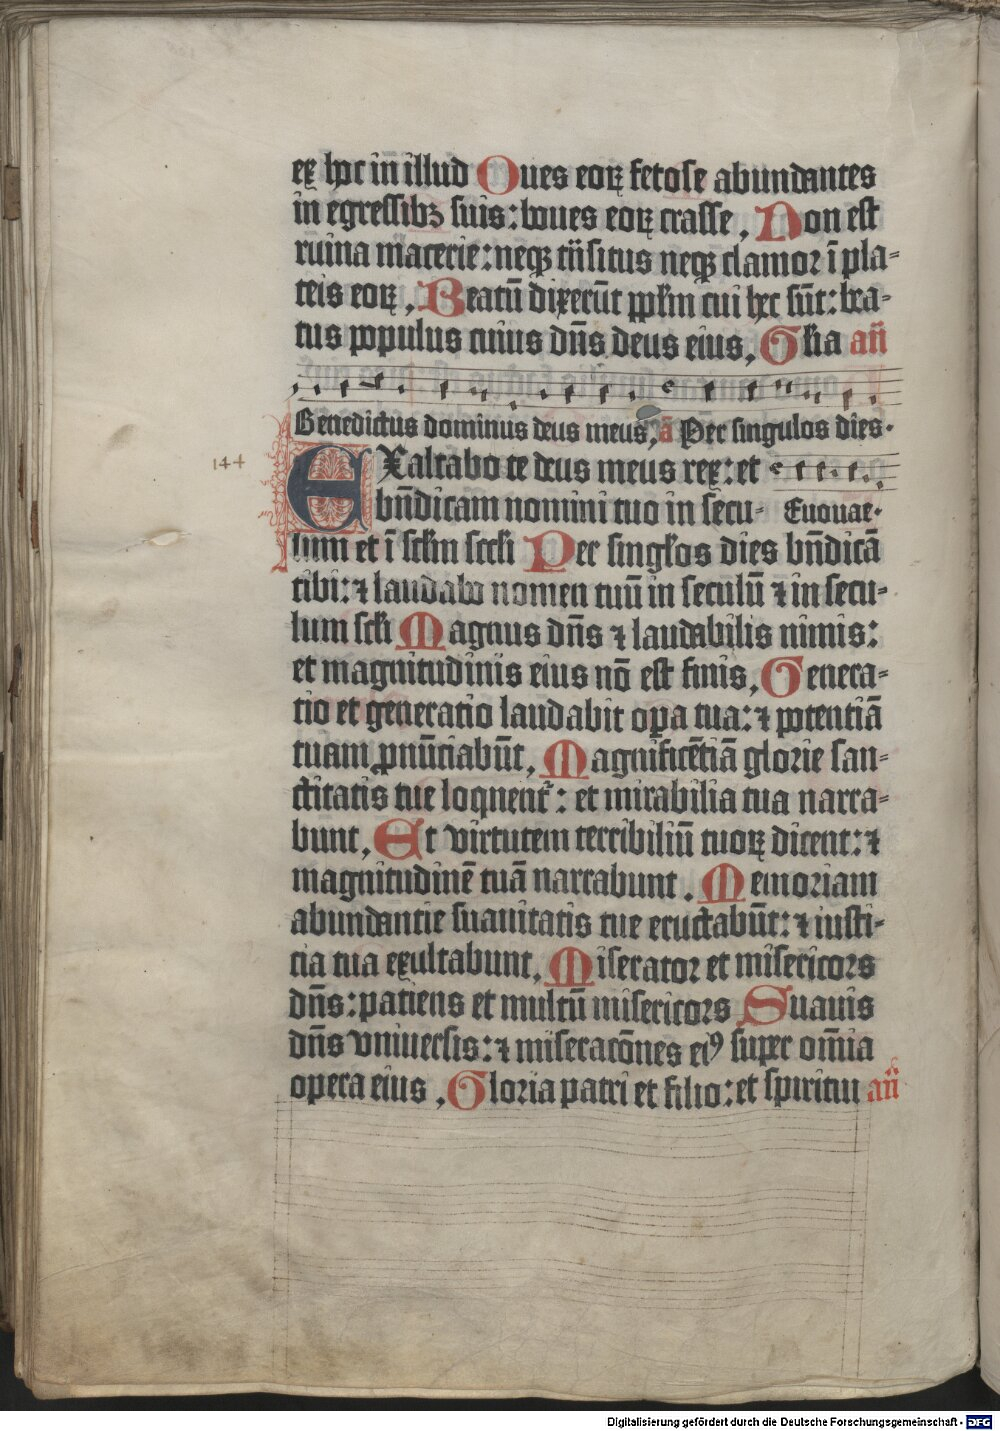 ex hoc in illud Oues eoꝝ fetose abundantes
in egressibꝫ suis: boues eoꝝ crasse, Non est
ruina macerie: neqꝫ trāsitus neqꝫ clamor ī pla-
teis eoꝝ, Beatū dixerūt ppl'm cui hec sūt: bea-
tus populus cuius dn̄s deus eius, Gl'ia an̄
Benedictus dominus deus meus, ā Per singulos dies.
144
EXaltabo te deus meus rex: et
bn̄dicam nomini tuo in secu-
Euouae.
lum et ī scl'm sccli Per singl'os dies bn̄dicā
tibi: ⁊ laudabo nomen tuū in seculū ⁊ in secu-
lum scl'i Magnus dn̄s ⁊ laudabilis nimis:
et magnitudinis eius nō est finis, Genera-
tio et generatio laudabit oꝑa tua: ⁊ potentiā
tuam ꝓnūciabūt, Magnificētiā glorie san-
ctitatis tue loquent': et mirabilia tua narra-
bunt, Et virtutem terribiliū tuoꝝ dicent: ⁊
magnitudinē tuā narrabunt. Memoriam
abundantie suauitatis tue eructabūt: ⁊ iusti-
cia tua exultabunt, Miserator et misericors
dn̄s: patiens et multū misericors Suauis
dn̄s vniuersis: ⁊ miseracōnes eiꝰ super om̄ia
opera eius, Gloria patri et filio: et spiritui an̄
Digitalisierung gefördert durch die Deutsche Forschungsgemeinschaft - DFG